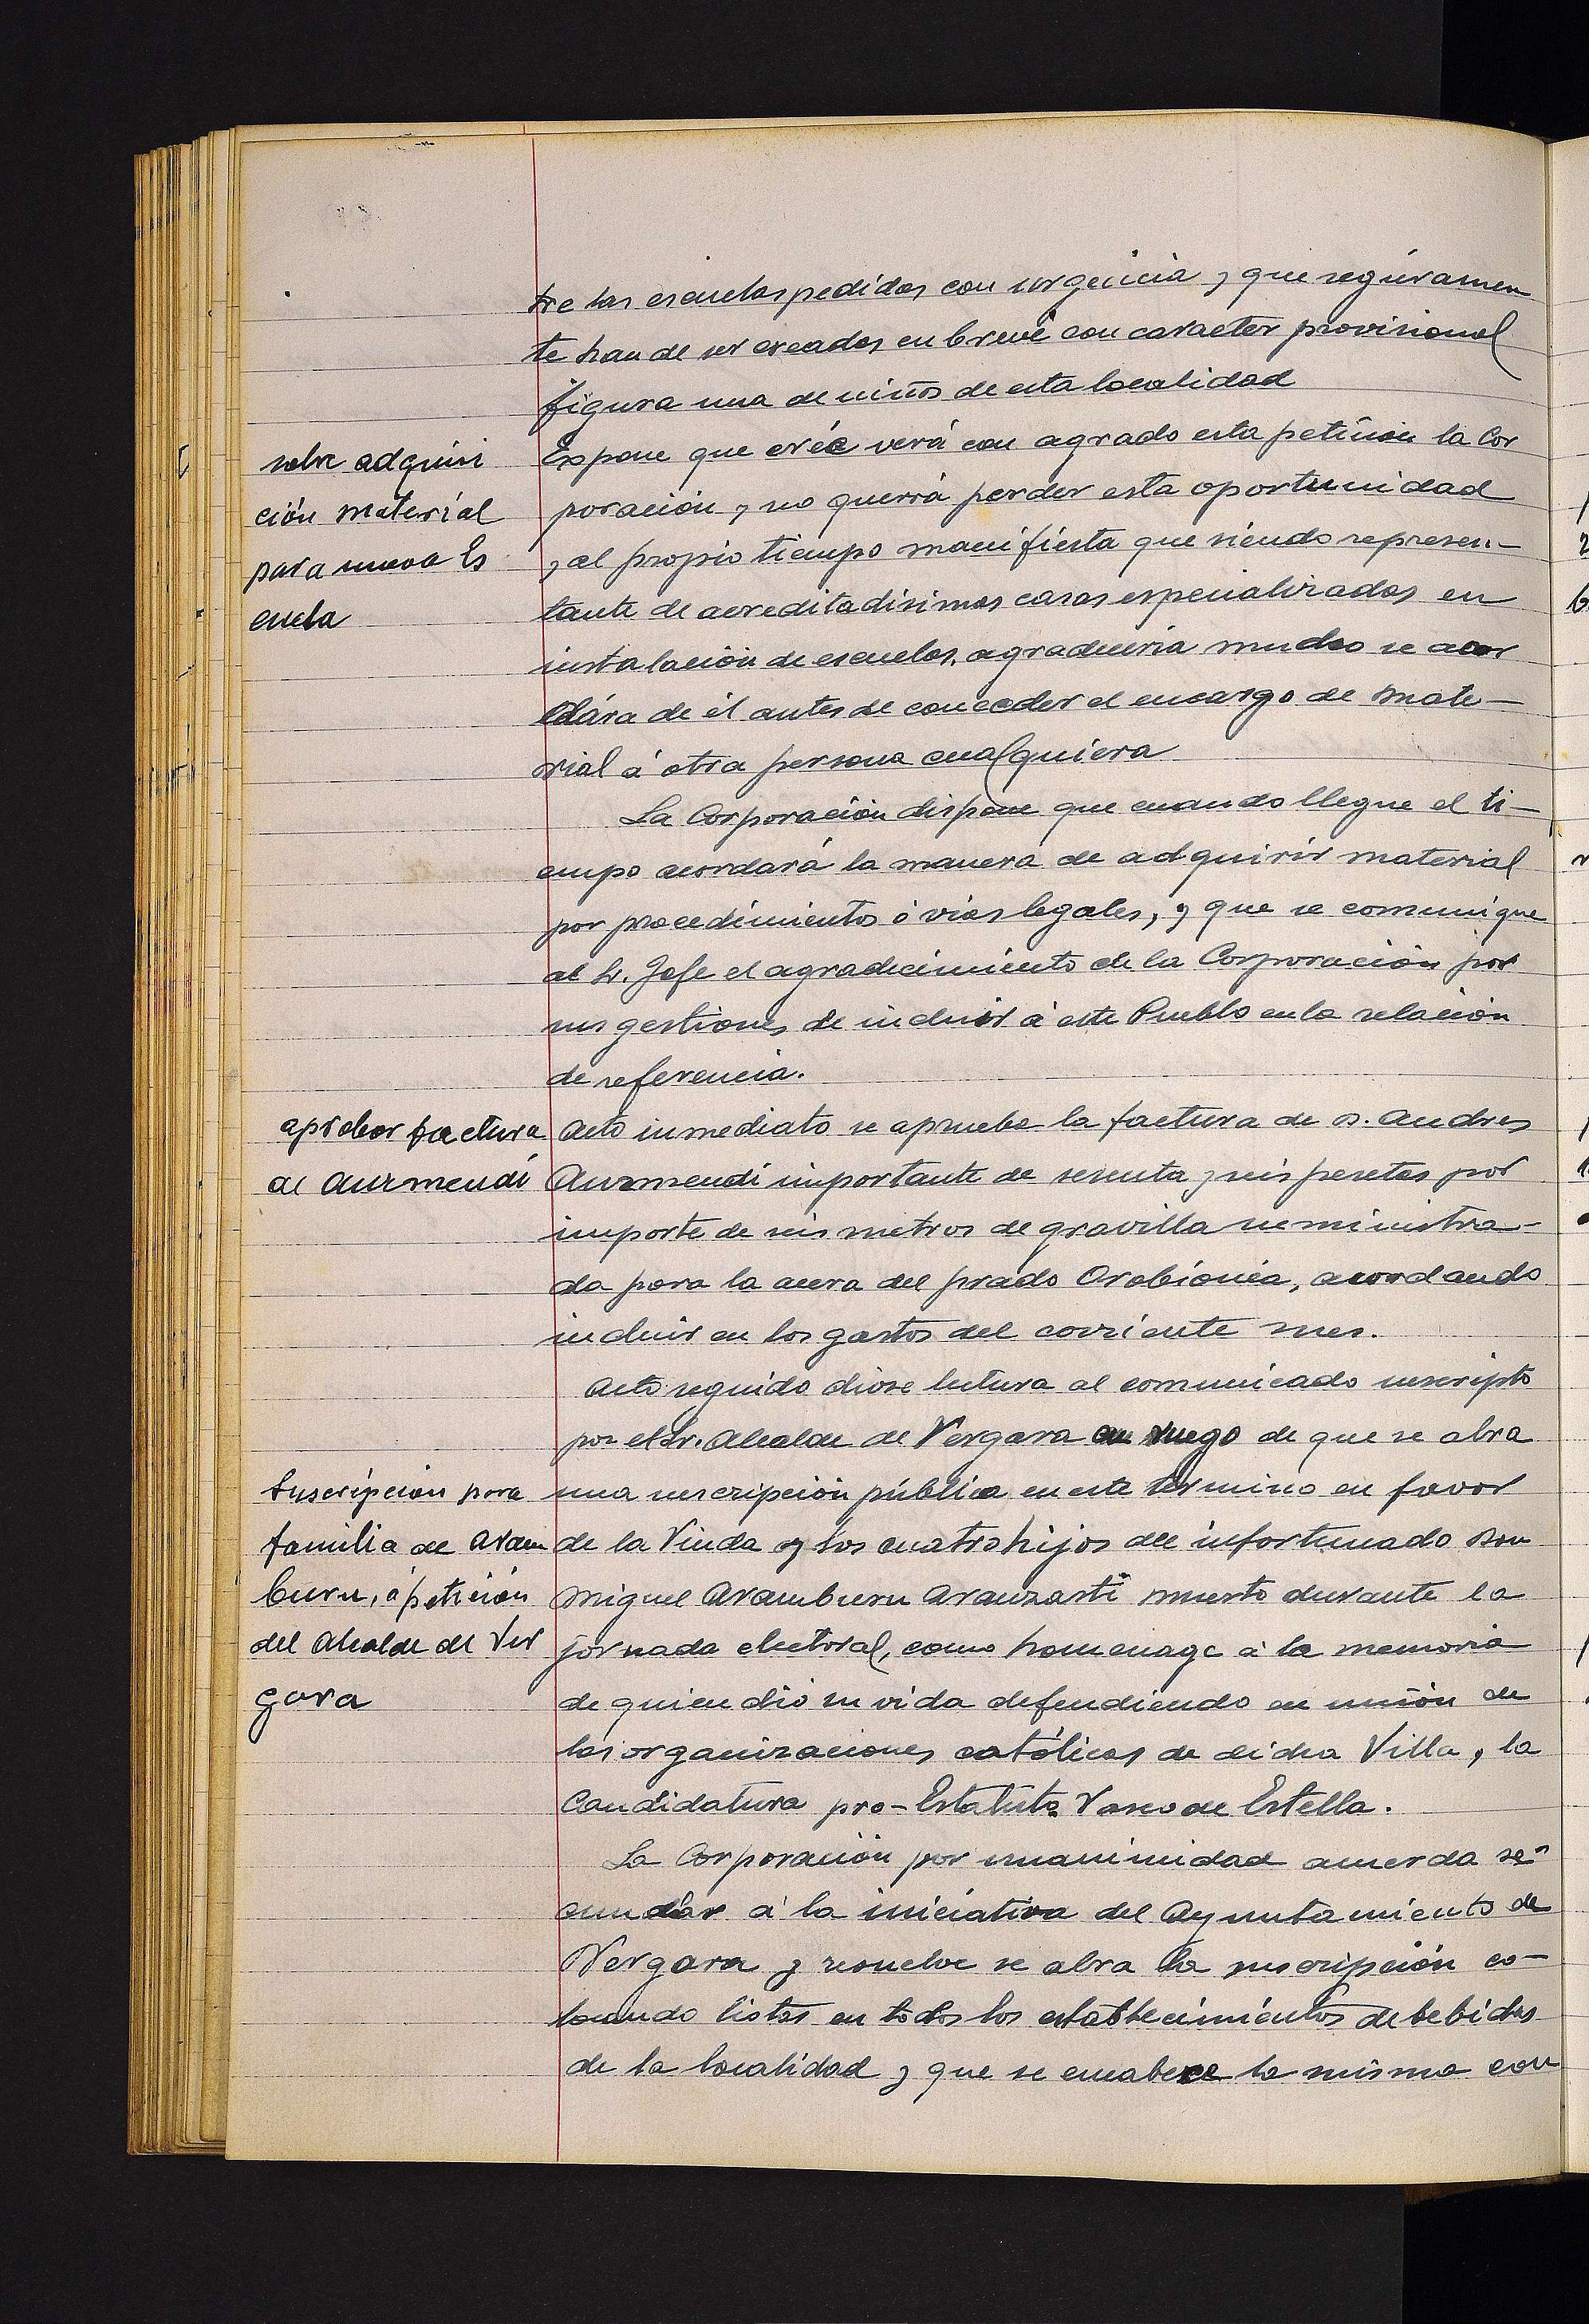 tre las escuelas pedidas con urgencia y que seguramen
te han de ser creadas en breve con caracter provisional
figura una de niños de esta localidad
sobre adquisi
ción material
para nueva Es
cuela
Expone que crée verá con agrado esta petición la Cor
poración y no querrá perder esta oportunidad
y al propio tiempo manifiesta que siendo represen-
tante de acreditadisimas casas especializadas en
instalación de escuelas, agradeceria mucho se acor
dára de él antes de conceder el encargo de mate-
rial á otra persona cualquiera
La Corporación dispone que cuando llegue el ti-
empo acordará la manera de adquirir material
por procedimientos ó vias legales, y que se comunique
al Sr. Jefe el agradecimiento de la Corporación por
sus gestiones de incluir á este Pueblo en la relación
de referencia.
aprobar factura
de Auzmendi
Acto inmediato se aprueba la factura de D. Andres
Auzmendi importante de sesenta y seis pesetas por
importe de seis metros de gravilla suministra-
da para la acera del prado Orobionia, acordando
incluir en los gastos del corriente mes.
Acto seguido diose lectura al comunicado suscripto
por el Sr. Alcalde de Vergara en ruego de que se abra
Suscripción para
familia de Aram
buru, á petición
del Alcalde de Ver
gara
una suscripción pública en este término en favor
de la Viuda y los cuatro hijos del infortunado Don
Miguel Aramburu Aranzasti muerto durante la
jornada electoral, como homenage á la memoria
de quien dió su vida defendiendo en unión de
las organizaciones católicas de dicha Villa, la
Candidatura pro-Estatuto Vasco de Estella.
La Corporación por unanimidad acuerda se-
cundar á la iniciativa del Ayuntamiento de
Vergara y resuelve se abra la suscripción co-
locando listas en todos los establecimientos de bebidas
de la localidad y que se encabece la misma con